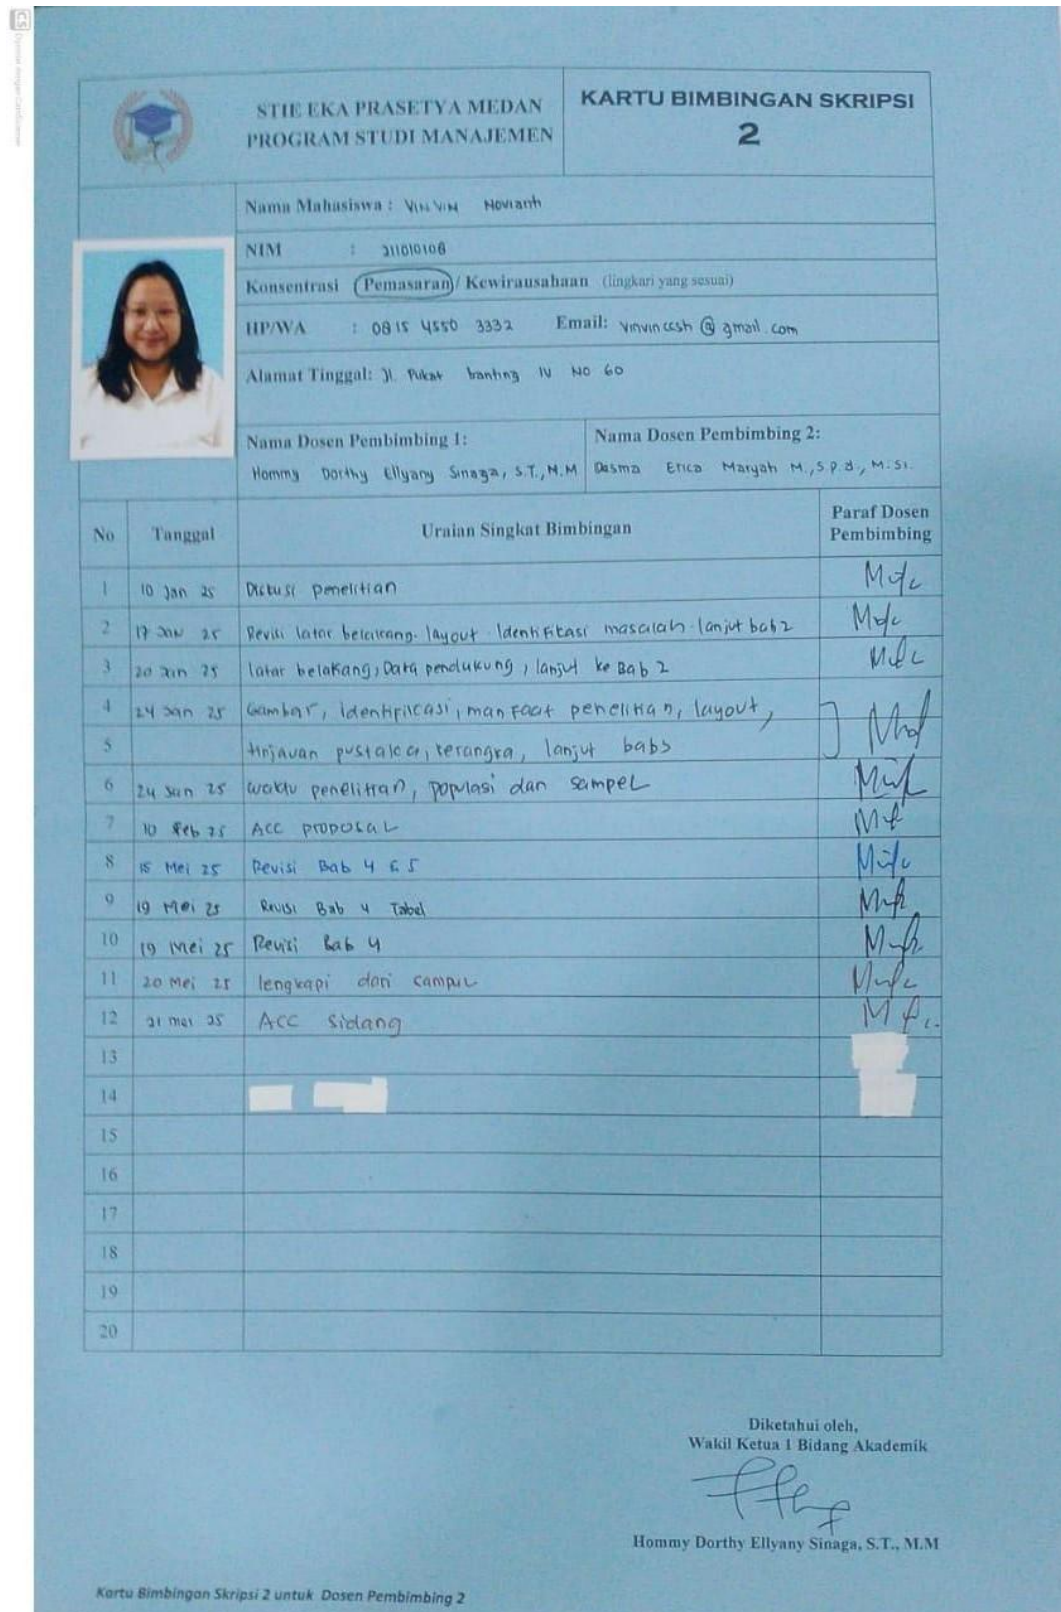 CS Dipindai dengan CamScanner
STIE EKA PRASETYA MEDAN
PROGRAM STUDI MANAJEMEN
KARTU BIMBINGAN SKRIPSI
2
Nama Mahasiswa : Vin Vin Novianti
NIM : 211010108
Konsentrasi Pemasaran / Kewirausahaan (lingkari yang sesuai)
HP/WA : 0815 4550 3332 Email: vinvinccsh@gmail.com
Alamat Tinggal: Jl. Pukat banting IV No 60
Nama Dosen Pembimbing 1:
Hommy Dorthy Ellyany Sinaga, S.T., M.M
Nama Dosen Pembimbing 2:
Desma Erica Maryati M., S.Pd., M.Si.
No Tanggal Uraian Singkat Bimbingan Paraf Dosen Pembimbing
1 10 Jan 25 Diskusi penelitian
2 17 Jan 25 Revisi latar belakang. layout. Identifikasi masalah. lanjut bab 2
3 20 Jan 25 latar belakang, Data pendukung, lanjut ke Bab 2
4 24 Jan 25 Gambar, identifikasi, manfaat penelitian, layout,
5 tinjauan pustaka, kerangka, lanjut bab 3
6 24 Jan 25 waktu penelitian, populasi dan sampel
7 10 Feb 25 ACC proposal
8 15 Mei 25 Revisi Bab 4 & 5
9 19 Mei 25 Revisi Bab 4 Tabel
10 19 Mei 25 Revisi Bab 4
11 20 Mei 25 lengkapi dari
12 21 mei 25 ACC Sidang
13
14
15
16
17
18
19
20
Diketahui oleh,
Wakil Ketua 1 Bidang Akademik
Hommy Dorthy Ellyany Sinaga, S.T., M.M
Kartu Bimbingan Skripsi 2 untuk Dosen Pembimbing 2